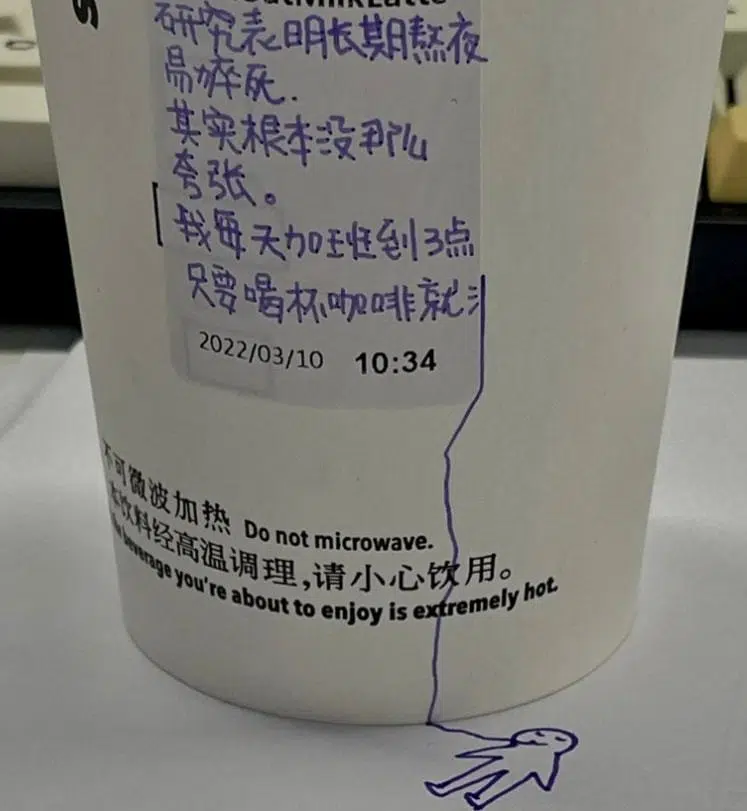 研究表明长期熬夜
易猝死.
其实根本没那么
夸张。
我每天加班到3点
只要喝杯咖啡就
2022/03/10 10:34
不可微波加热 Do not microwave.
本饮料经高温调理,请小心饮用。
beverage you're about to enjoy is extremely hot.